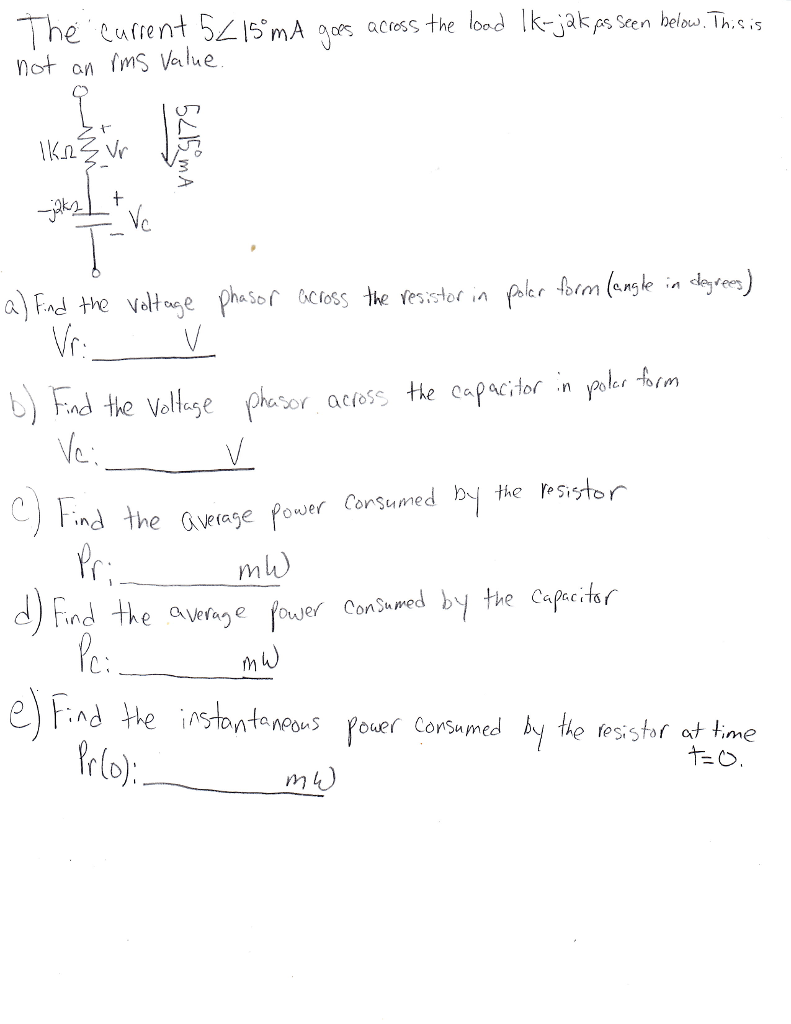 The current 5∠15°mA goes across the load 1k-j2k as seen below. This is
not an rms value.
1KΩ
+
Vr
-
5∠15°mA
-j2kΩ
+
Vc
-
a) Find the voltage phasor across the resistor in polar form (angle in degrees)
Vr: ________ V
b) Find the voltage phasor across the capacitor in polar form
Vc: ________ V
c) Find the average power consumed by the resistor
Pr: ________ mW
d) Find the average power consumed by the capacitor
Pc: ________ mW
e) Find the instantaneous power consumed by the resistor at time
t=0.
Pr(0): ________ mW